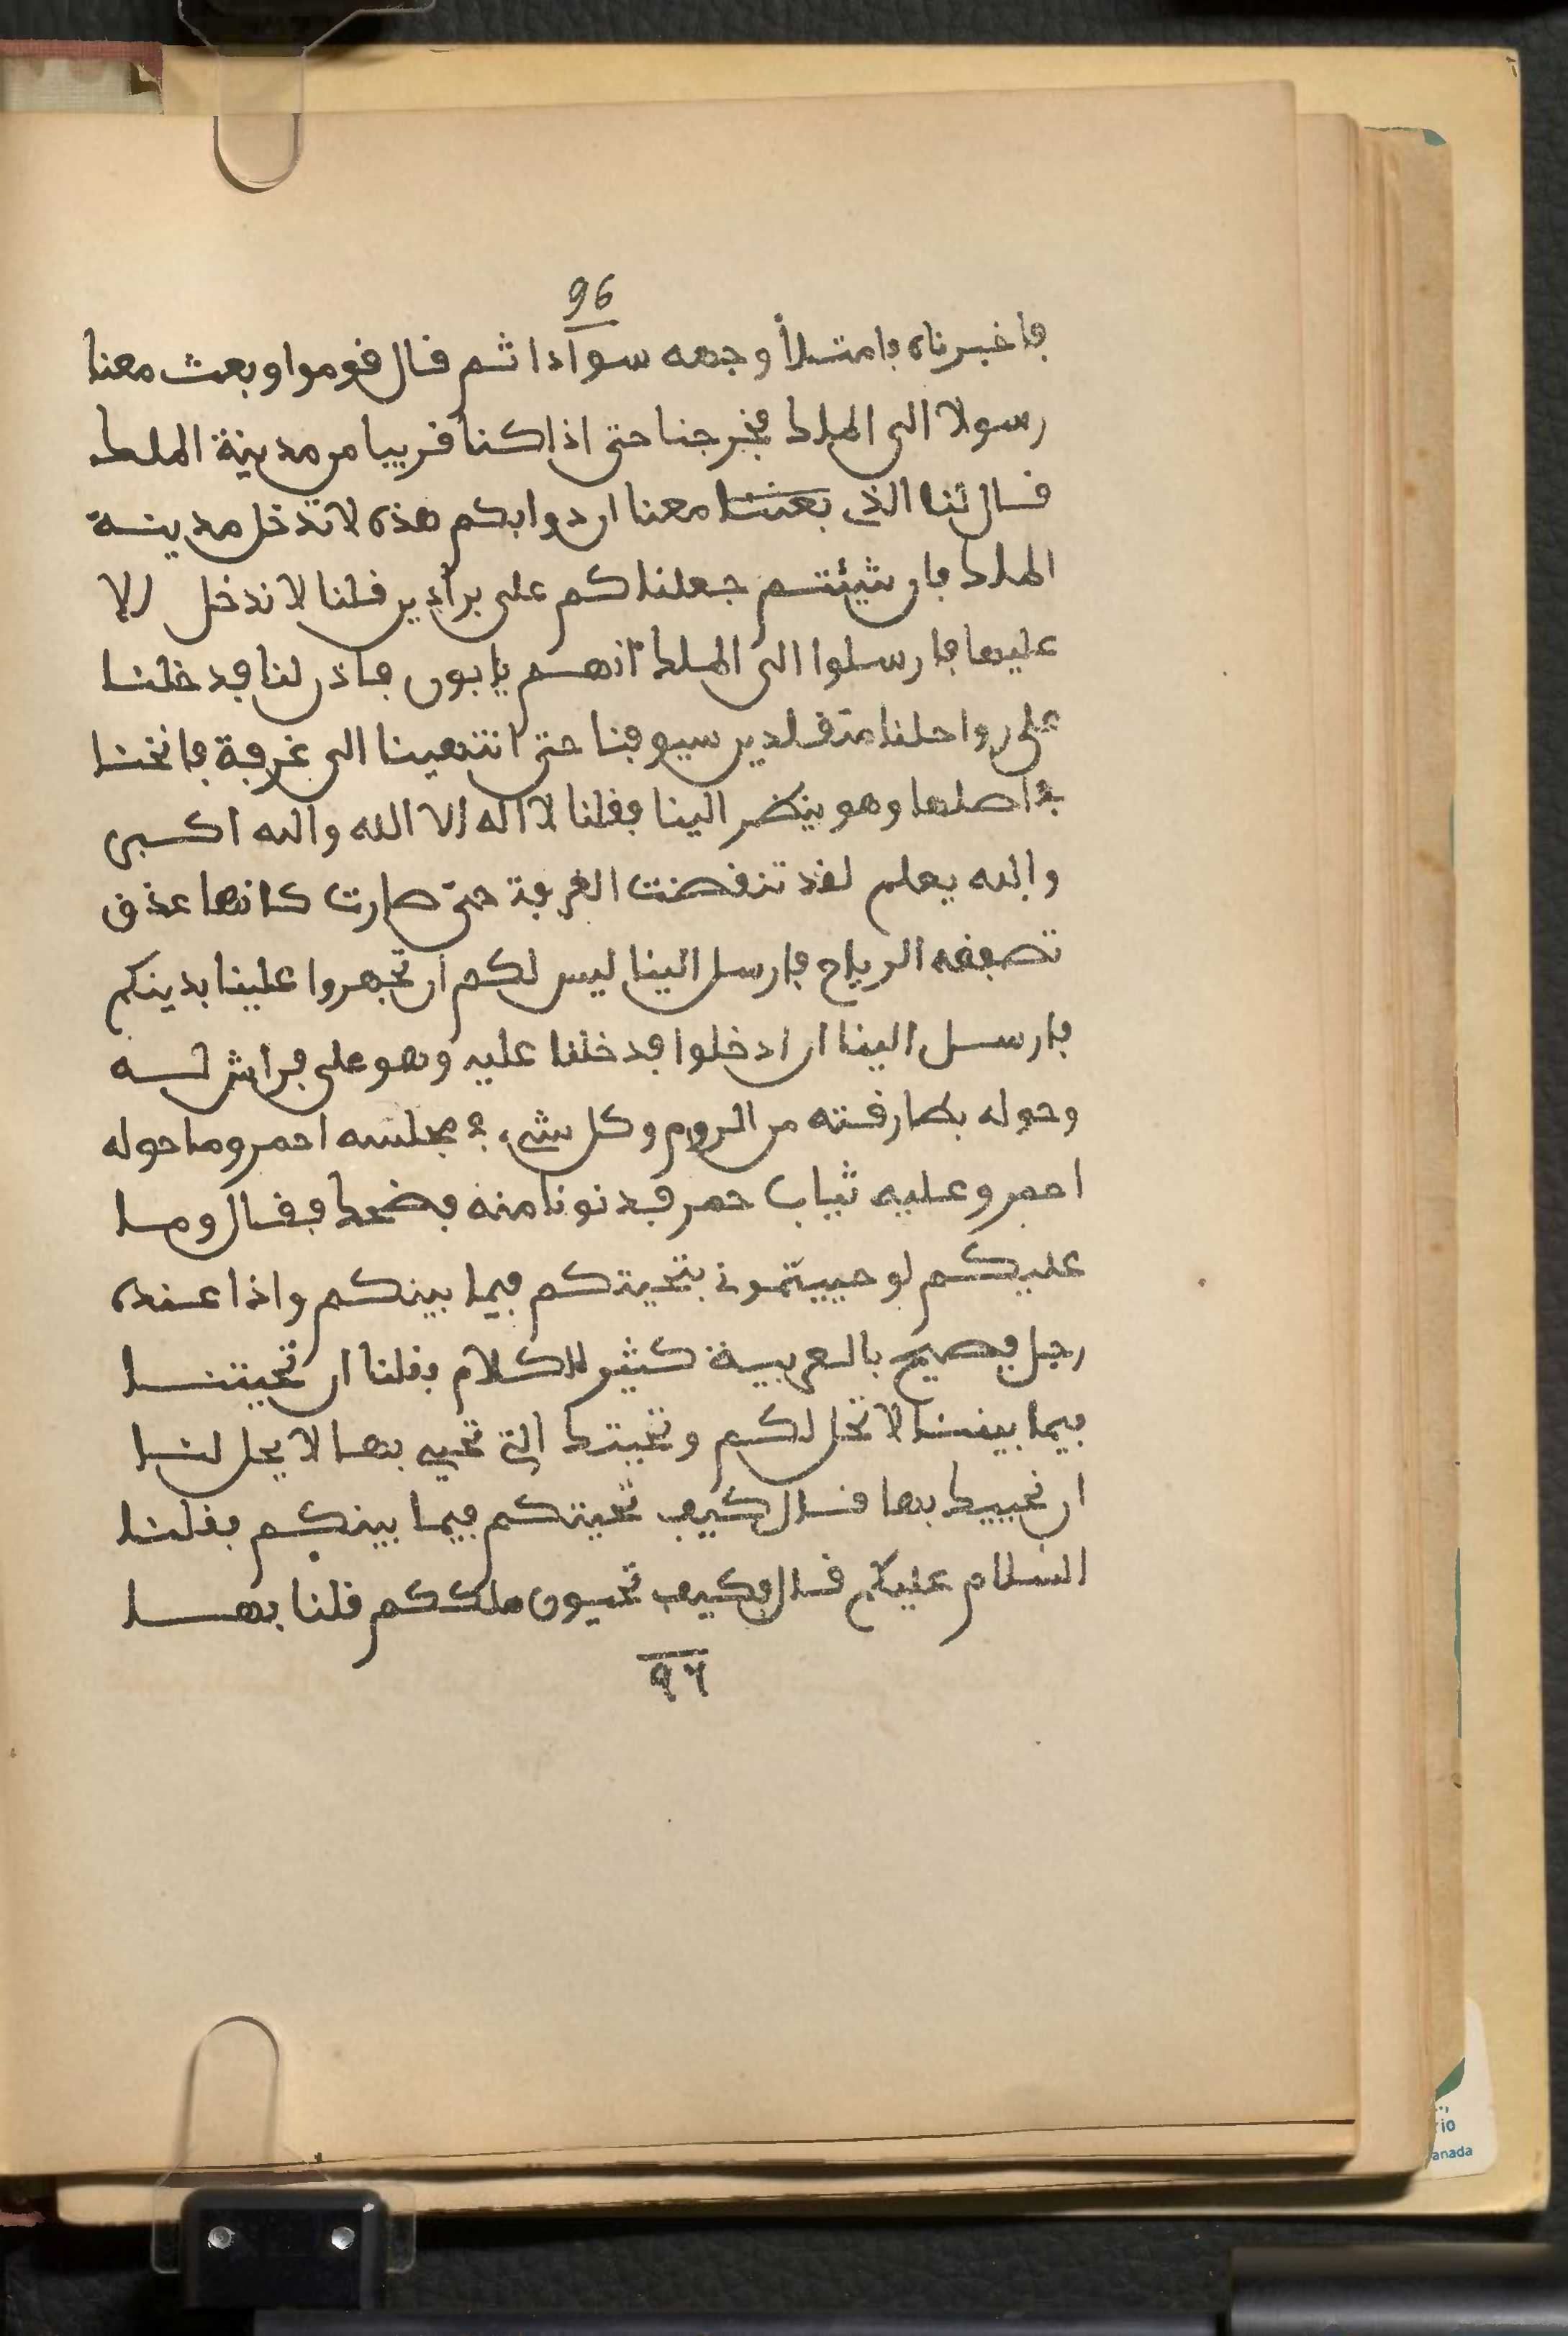 96
فاخبرناه فامتلأ وجهه سوادا ثم قال قوموا وبعث معنا
رسولا الى الملك فخرجنا حتى اذا كنا قريبا من مدينة الملك
قال لنا الذي بعث معنا ان دوابكم هذه لا تدخل مدينة
الملك فان شيئتم جعلناكم على براذين قلنا لا ندخل الا
عليها فارسلوا الى الملك انهم يابون فاذن لنا فدخلنا
على رواحلنا متقلدين سيوفنا حتى انتهينا الى غرفة فانخنا
في اصلها وهو ينظر الينا فقلنا لا اله الا الله والله اكبر
والله يعلم لقد تنفضت الغرفة حتى صارت كانها عذق
تصفقه الرياح فارسل الينا ليس لكم ان تجهروا علينا بدينكم
فارسل الينا ان ادخلوا فدخلنا عليه وهو على فراش له
وحوله بطارفته من الروم وكل شيء في مجلسه احمر وما حوله
احمر وعليه ثياب حمر فدنونا منه فضحك فقال وما
عليكم لو حييتموني بتحيتكم فيما بينكم واذا عنده
رجل فصيح بالعربية كثير الكلام فقلنا ان تحيتنا
فيما بيننا لا تحل لكم وتحيتك التي تحيى بها لا يحل لنا
ان نحييك بها قال كيف تحيتكم فيما بينكم فقلنا
السلام عليكم قال فكيف تحيون ملككم قلنا بها
٩٦
rio
anada